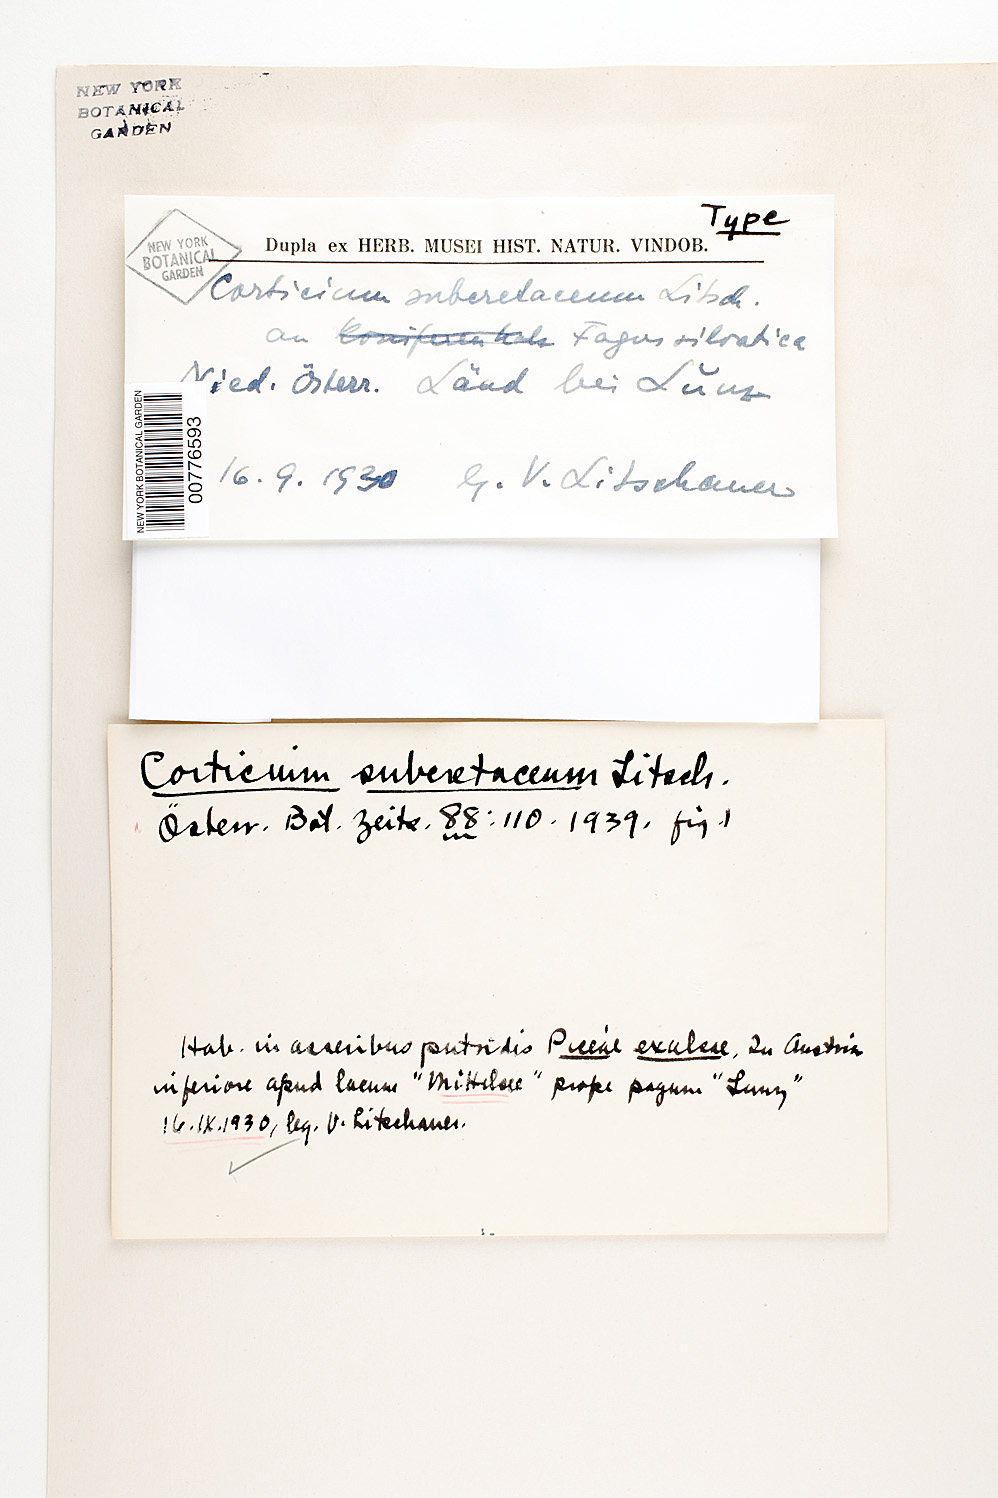 NEW YORK
BOTANICAL
GARDEN
Type
NEW YORK
BOTANICAL
GARDEN
Dupla ex HERB. MUSEI HIST. NATUR. VINDOB.
Corticium subcretaceum Litsch.
an Coniferenholz Fagus silvatica
Nied. Österr. Länd bei Lŭnz
16. 9. 1930 lg. V. Litschauer
NEW YORK BOTANICAL GARDEN
00776593
Corticium subcretaceum Litsch.
Österr. Bot. Zeits. 88: 110. 1939. fig 1
Hab. in asseribus putridis Piceae excelsae, in Austria
inferiore apud lacum "Mittelsee" prope pagum "Lunz"
16.IX.1930, leg. V. Litschauer.